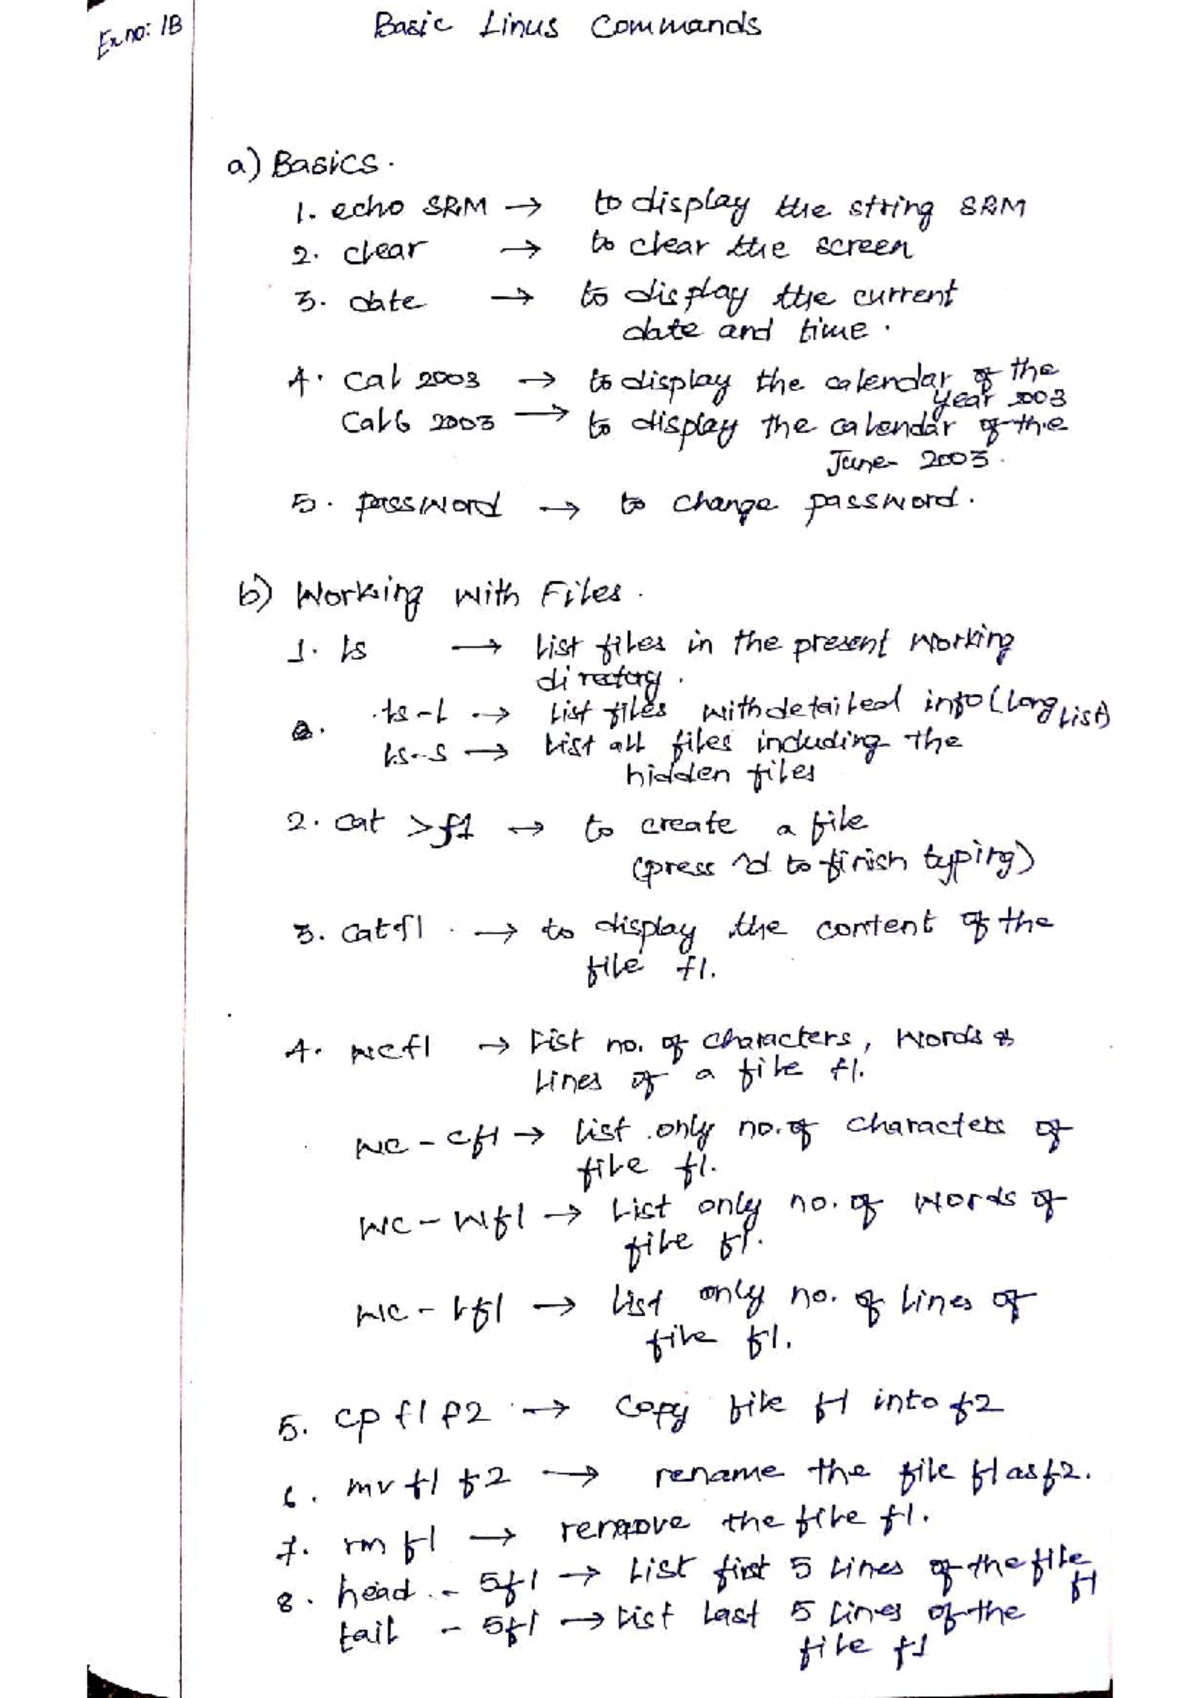 Ex no: 1B
Basic Linus Commands
a) Basics.
1. echo SRM → to display the string SRM
2. clear → to clear the screen
3. date → to display the current
date and time.
4. cal 2003 → to display the calendar of the
year 2003
Cal 6 2003 → to display the calendar of the
June- 2003.
5. password → to change password.
b) Working with Files.
1. ls → List files in the present working
directory.
ls-l → List files with detailed info (long list)
ls-s → List all files including the
hidden files
2. cat >f1 → to create a file
(press ^d to finish typing)
3. cat f1 → to display the content of the
file f1.
4. wc f1 → List no. of characters, words &
Lines of a file f1.
wc - c f1 → List only no. of characters of
file f1.
wc - w f1 → List only no. of words of
file f1.
wc - l f1 → List only no. of lines of
file f1.
5. cp f1 f2 → Copy file f1 into f2
6. mv f1 f2 → rename the file f1 as f2.
7. rm f1 → remove the file f1.
8. head - 5 f1 → List first 5 lines of the file
f1
tail - 5 f1 → List last 5 lines of the
file f1